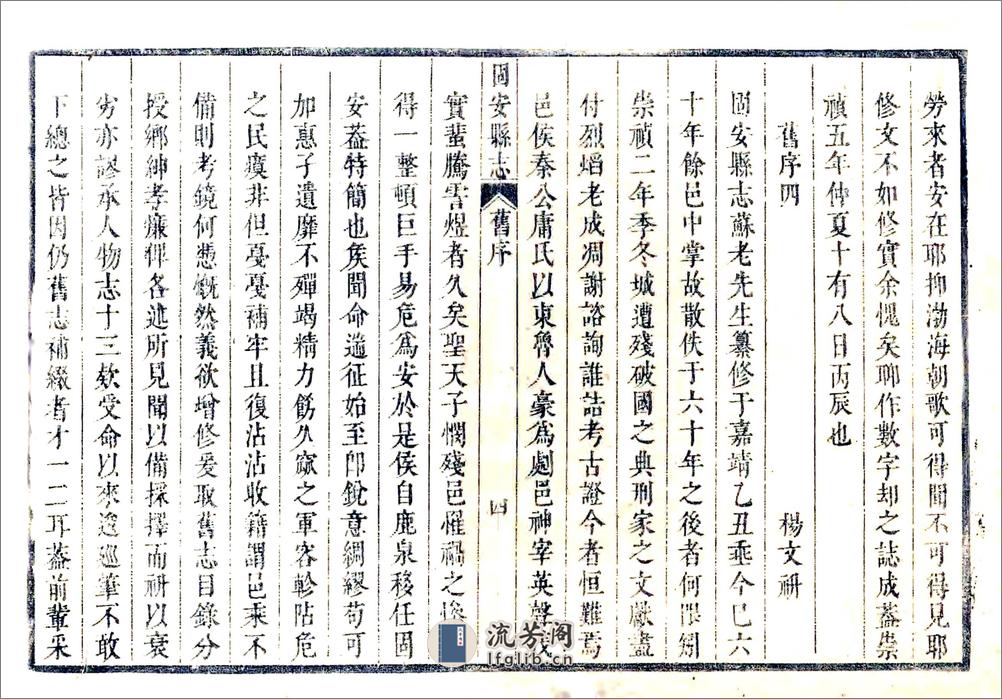 勞來者安在耶抑渤海朝歌可得聞不可得見耶
修文不如修實余愧矣聊作數字却之誌成蓋崇
禎五年仲夏十有八日丙辰也
舊序四 楊文硎
固安縣志蘇老先生纂修于嘉靖乙丑垂今已六
十年餘邑中掌故散佚于六十年之後者何限矧
崇禎二年季冬城遭殘破國之典刑家之文獻盡
付烈熖老成凋謝諮詢誰詰考古證今者恒難焉
邑侯秦公庸氏以東魯人豪爲劇邑神宰英聲義
固安縣志 舊序 四
實蜚騰霅煜者久矣聖天子憫殘邑罹禍之慘
得一整頓巨手易危爲安於是侯自鹿泉移任固
安葢特簡也矦聞命遄征始至卽銳意綢繆苟可
加惠孑遺靡不殫竭精力飭久窳之軍容軫阽危
之民瘼非但戞戞補牢且復沾沾收籍謂邑乘不
備則考鏡何慿慨然義欲增修爰取舊志目錄分
授鄉紳孝廉俾各述所見聞以備採擇而硎以衰
劣亦謬承人物志十三欵受命以來逡巡筆不敢
下總之皆因仍舊志補綴者才一二耳葢前輩采
流芳阁
lfglib.cn